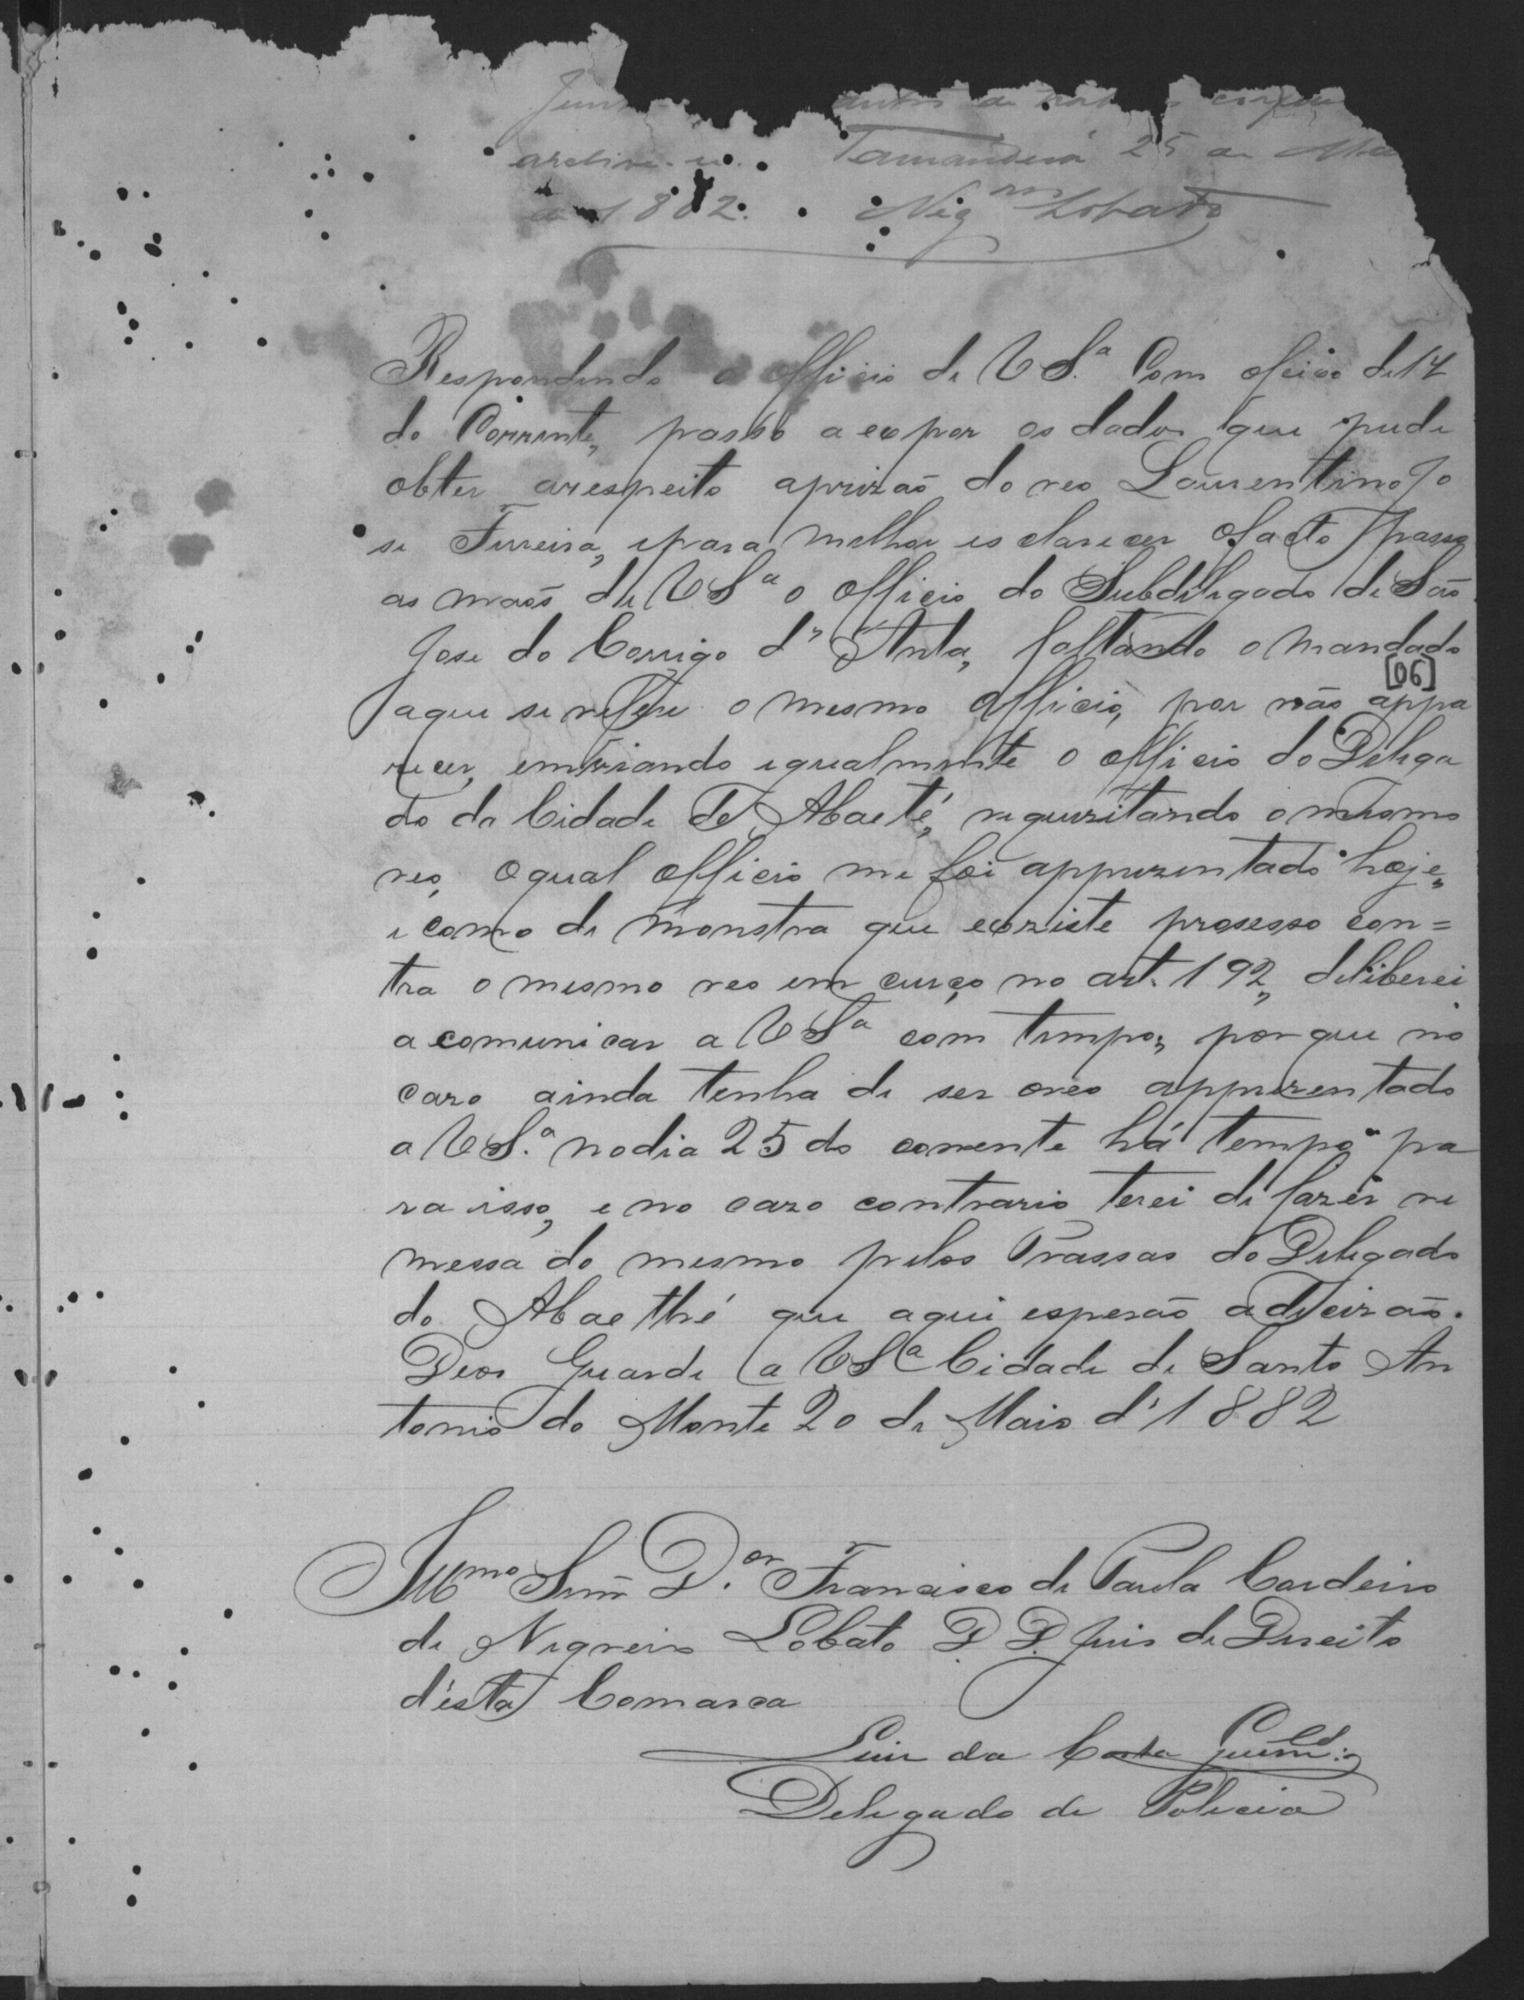 Tamanduá 25 de
de 1882. Neg.ros Lobato
Respondendo o officio de V S.ª Com oficio de 17
do Corrente, passo a expor os dados que pude
obter arespeito aprizaõ do reo Laurentino Jo
se Ferreira, epara melhor esclarecer ofacto passo
as maõs de V Sª o officio do Subdelegado de Saõ
Jose do Corrigo d'Anta, faltando o mandado
[06]
aque se refere o mesmo officio, por não appa
recer, emviando egualmente o officio do Delega
do da Cidade de Abaeté, requizitando o mesmo
reo, oqual officio me foi apprezentado hoje,
e como de monstra que exziste prosesso con=
tra o mesmo reo em curço no art. 192, deliberei
a comunicar a V Sª com tempo, por que no
cazo ainda tenha de ser oreo apprezentado
a V S.ª nodia 25 do corrente há tempo pa
ra isso, e no cazo contrario terei de fazer re
messa do mesmo pelos Prassas do Delegado
do Abaethé que aqui esperão adeizaõ.
Deos Guarde a V Sª Cidade de Santo An
tonio do Monte 20 de Maio d'1882
Illmo Snr D.or Francisco de Paula Cordeiro
de Negreiros Lobato D. D. Juis de Direito
d'esta Comarca
Luis da Costa
Delegado de Policia